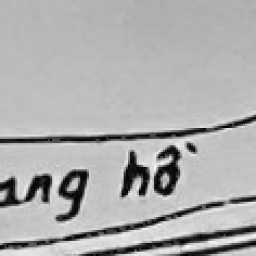 ang hồ